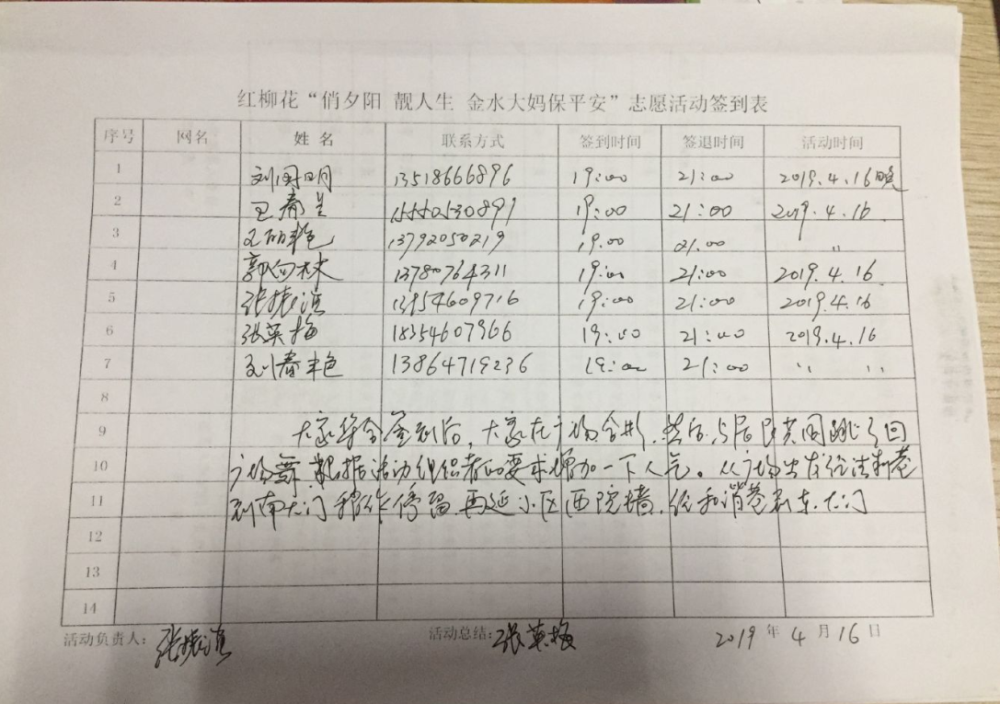 红柳花“俏夕阳 靓人生 金水大妈保平安”志愿活动签到表
序号 网名 姓名 联系方式 签到时间 签退时间 活动时间
1 刘国明 13518666896 19:00 21:00 2019.4.16晚
2 王春兰 15550530891 19:00 21:00 2019.4.16
3 王丽艳 13792050219 19:00 21:00 〃
4 郭向林 13780764311 19:00 21:00 2019.4.16
5 张 13954609716 19:00 21:00 2019.4.16
6 张英梅 18354607966 19:00 21:00 2019.4.16
7 刘春艳 13864719236 19:00 21:00 〃 〃
8
9 大家集合签到后,大家在广场合影,然后与居民共同跳了回
10 广场舞 根据活动组织者的要求增加一下人气。从广场出发经法
11 到南大门稍作停留,再延小区西院墙,经和消巷到东大门
12
13
14
活动负责人:张 活动总结:张英梅 2019年4月16日